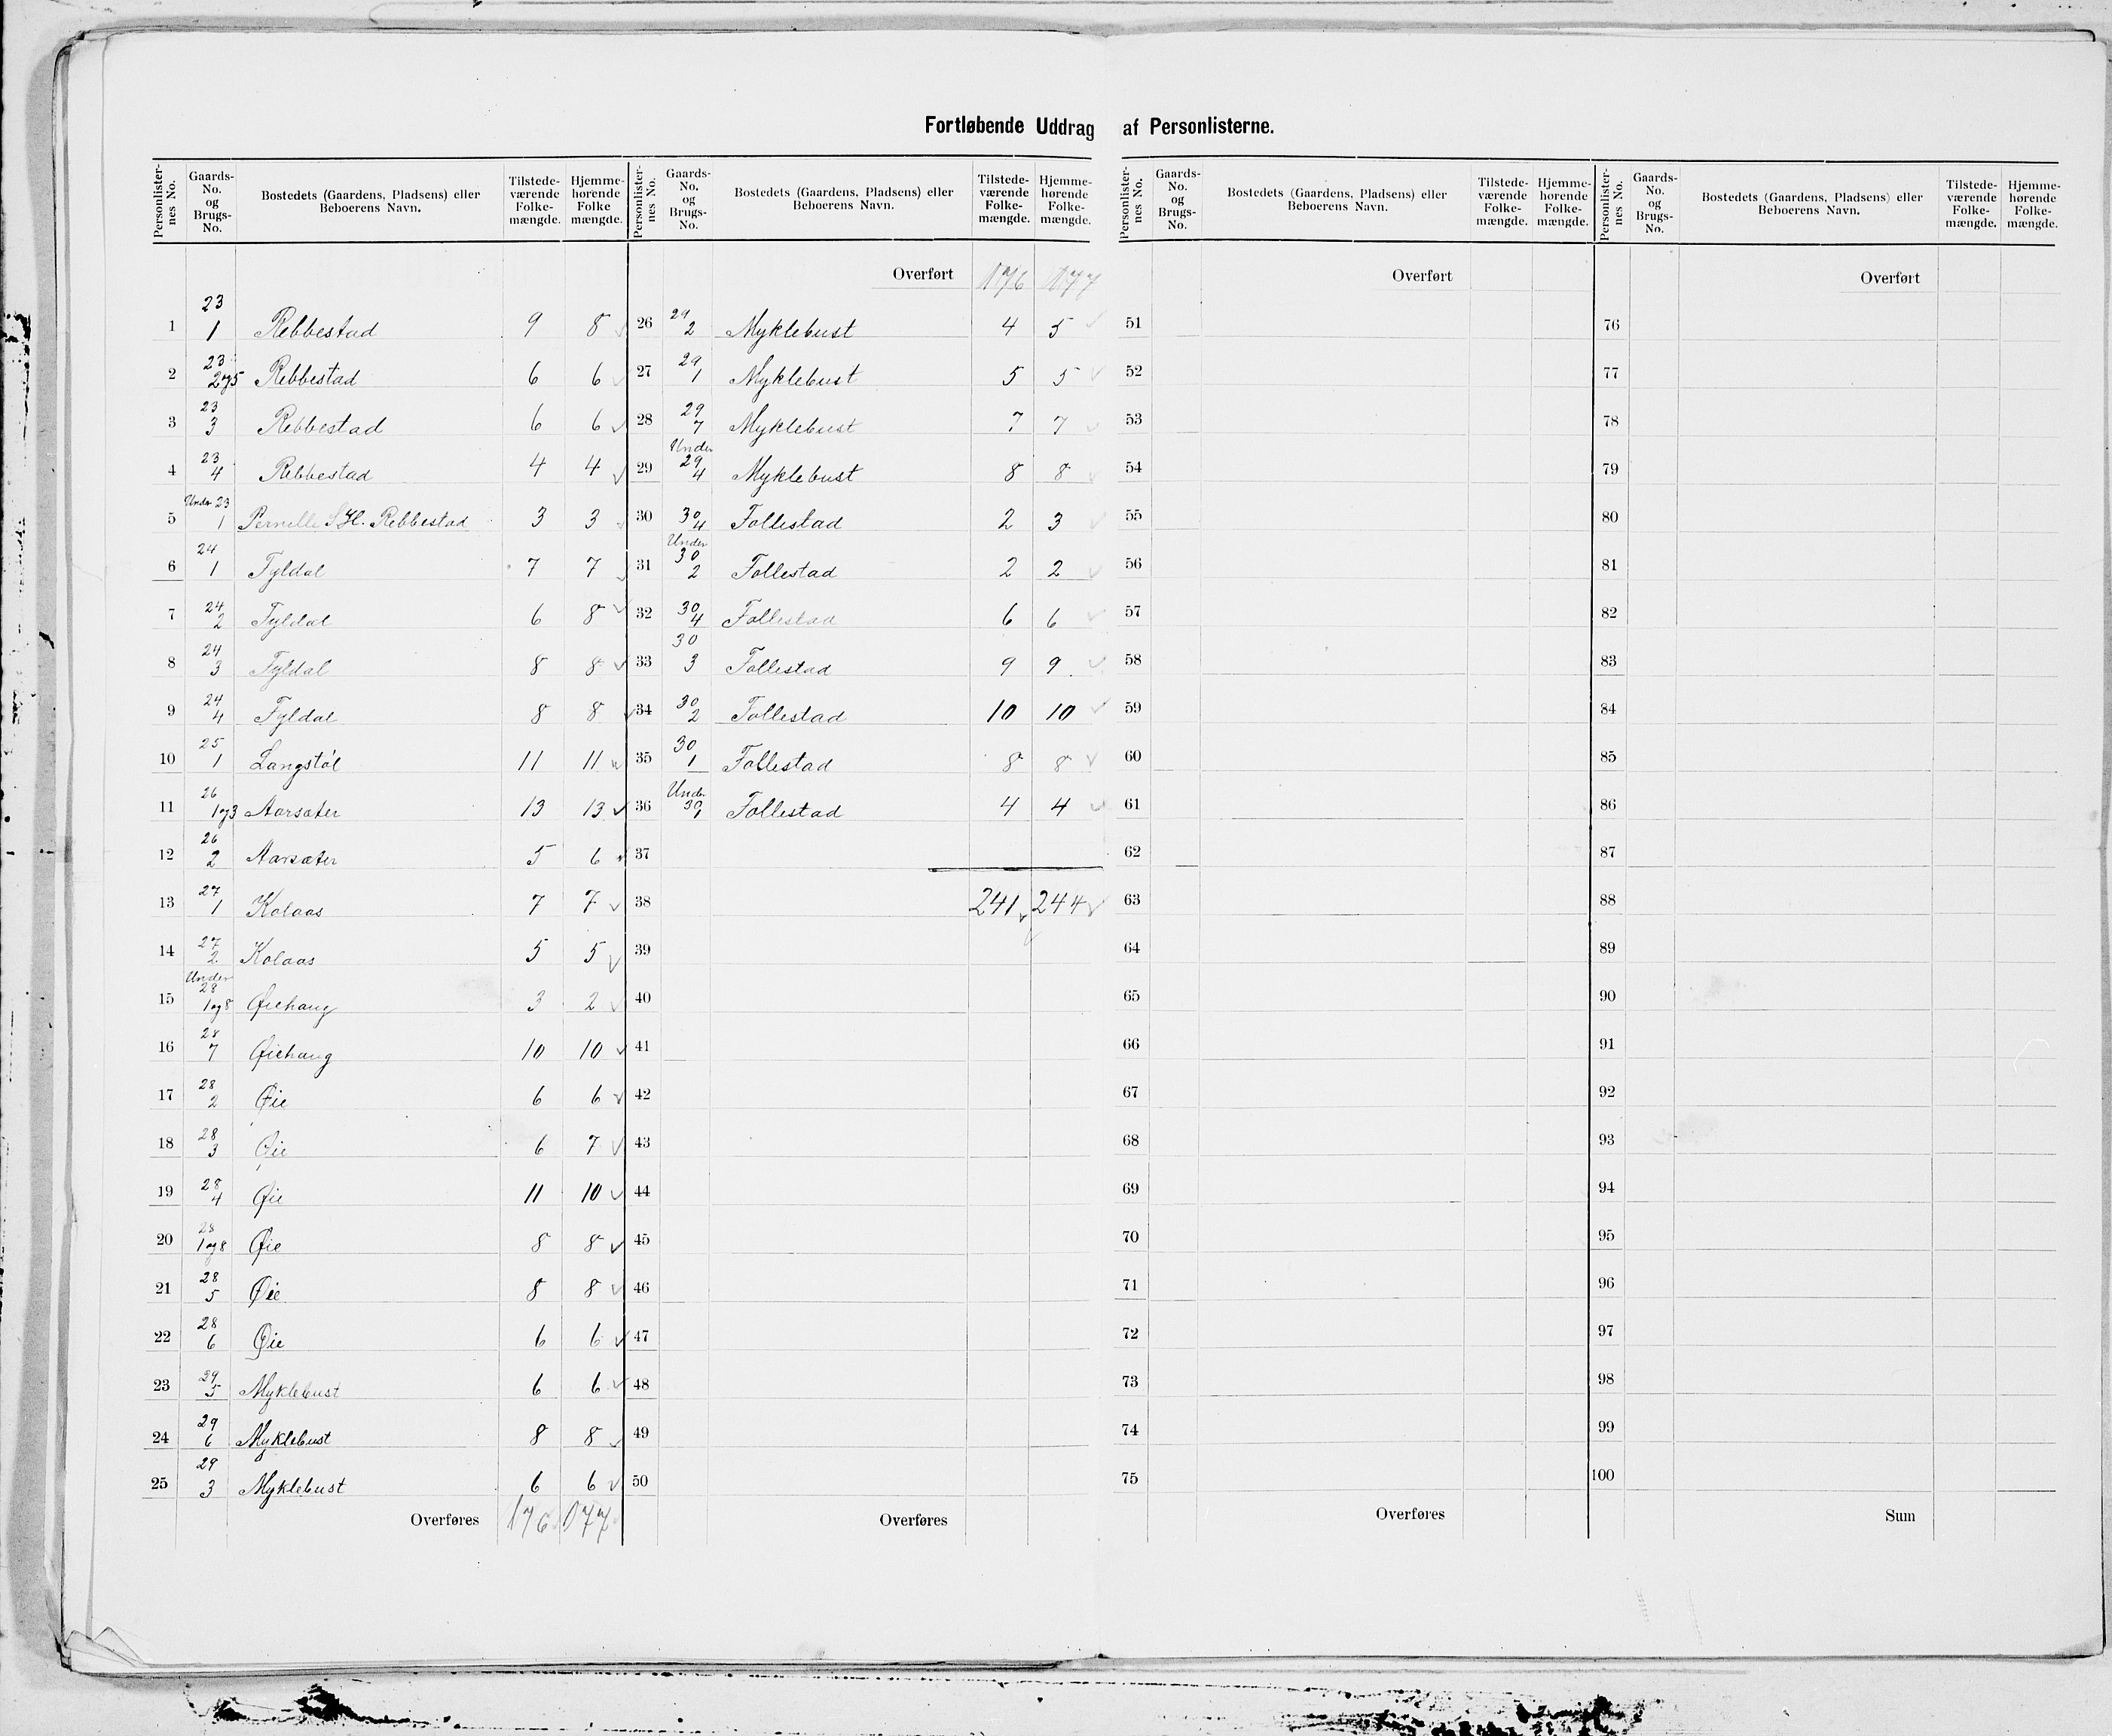 Fortløbende Uddrag af Personlisterne.
Personlister-nes No. Gaards-No. og Brugs-No. Bostedets (Gaardens, Pladsens) eller Beboerens Navn. Tilstede-værende Folke-mængde. Hjemme-hørende Folke mængde.
1 23 1 Rebbestad 9 8
2 23 2og5 Rebbestad 6 6
3 23 3 Rebbestad 6 6
4 23 4 Rebbestad 4 4
5 Under 23 1 Pernelle S H. Rebbestad 3 3
6 24 1 Fyldal 7 7
7 24 2 Fyldal 6 8
8 24 3 Fyldal 8 8
9 24 4 Fyldal 8 8
10 25 1 Langstøl 11 11
11 26 1og3 Aarsæter 13 13
12 26 2 Aarsæter 5 6
13 27 1 Kolaas 7 7
14 27 2 Kolaas 5 5
15 Under 28 1og8 Øiehaug 3 2
16 28 7 Øiehaug 10 10
17 28 2 Øie 6 6
18 28 3 Øie 6 7
19 28 4 Øie 11 10
20 28 1og8 Øie 8 8
21 28 5 Øie 8 8
22 28 6 Øie 6 6
23 29 5 Myklebust 6 6
24 29 6 Myklebust 8 8
25 29 3 Myklebust 6 6
Overføres 176 177
Personlister-nes No. Gaards-No. og Brugs-No. Bostedets (Gaardens, Pladsens) eller Beboerens Navn. Tilstede-værende Folke-mængde. Hjemme-hørende Folke-mængde.
Overført 176 177
26 29 2 Myklebust 4 5
27 29 1 Myklebust 5 5
28 29 7 Myklebust 7 7
29 Under 29 4 Myklebust 8 8
30 30 4 Follestad 2 3
31 Under 30 2 Follestad 2 2
32 30 4 Follestad 6 6
33 30 3 Follestad 9 9
34 30 2 Follestad 10 10
35 30 1 Follestad 8 8
36 Under 30 1 Follestad 4 4
37
38 241 244
39
40
41
42
43
44
45
46
47
48
49
50
Overføres
Personlister-nes No. Gaards-No. og Brugs-No. Bostedets (Gaardens, Pladsens) eller Beboerens Navn. Tilstede-værende Folke-mængde. Hjemme-hørende Folke-mængde.
Overført
51
52
53
54
55
56
57
58
59
60
61
62
63
64
65
66
67
68
69
70
71
72
73
74
75
Overføres
Personlister-nes No. Gaards-No. og Brugs-No. Bostedets (Gaardens, Pladsens) eller Beboerens Navn. Tilstede-værende Folke-mængde. Hjemme-hørende Folke-mængde.
Overført
76
77
78
79
80
81
82
83
84
85
86
87
88
89
90
91
92
93
94
95
96
97
98
99
100
Sum